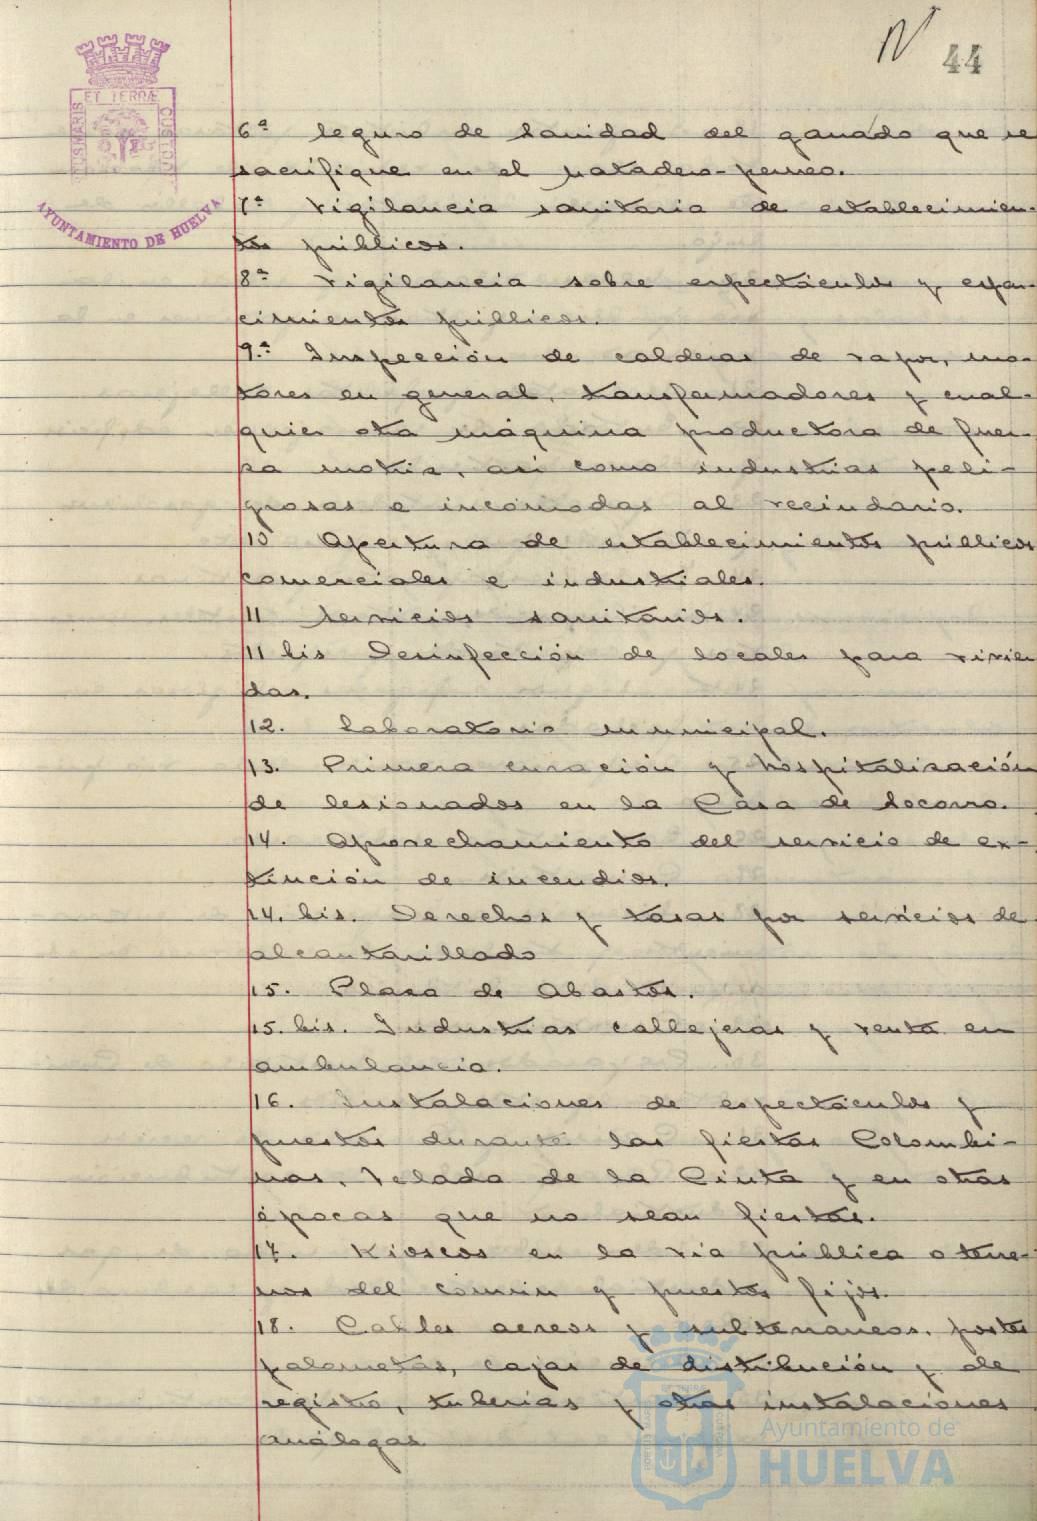 N 44
ET TERRÆ
TUS MARIS
CUSTODIA
AYUNTAMIENTO DE HUELVA
6ª Seguro de Sanidad del ganado que se
sacrifique en el matadero-perneo.
7ª Vigilancia sanitaria de establecimien-
tos públicos.
8ª Vigilancia sobre espectáculos y espar-
cimientos públicos.
9.ª Inspección de calderas de vapor, mo-
tores en general, transformadores y cual-
quier otra máquina productora de fuer-
za motriz, así como industrias peli-
grosas e incómodas al vecindario.
10 Apertura de establecimientos públicos
comerciales e industriales.
11 Servicios sanitarios.
11 bis Desinfección de locales para vivien
das.
12. Laboratorio municipal.
13. Primera curación y hospitalización
de lesionados en la Casa de Socorro.
14. Aprovechamiento del servicio de ex-
tinción de incendios.
14. bis. Derechos y tasas por servicios de
alcantarillado
15. Plaza de Abastos.
15. bis. Industrias callejeras y venta en
ambulancia.
16. Instalaciones de espectáculos y
puestos durante las fiestas Colombi-
nas, Velada de la Cinta y en otras
épocas que no sean fiestas.
17. Kioscos en la vía pública o terre-
nos del común y puestos fijos.
18. Cables aereos y subterraneos, postes
palometas, cajas de distribución y de
registro, tuberias y otras instalaciones
análogas
Ayuntamiento de
HUELVA